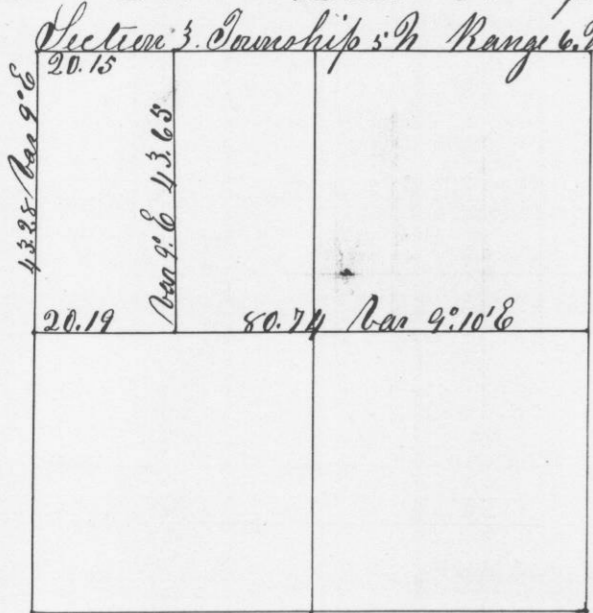 Section 3. Township 5 N Range 6.
20.15
43.28 Var 9° E
Var 9° E 43.65
20.19
80.74 Var 9°.10' E